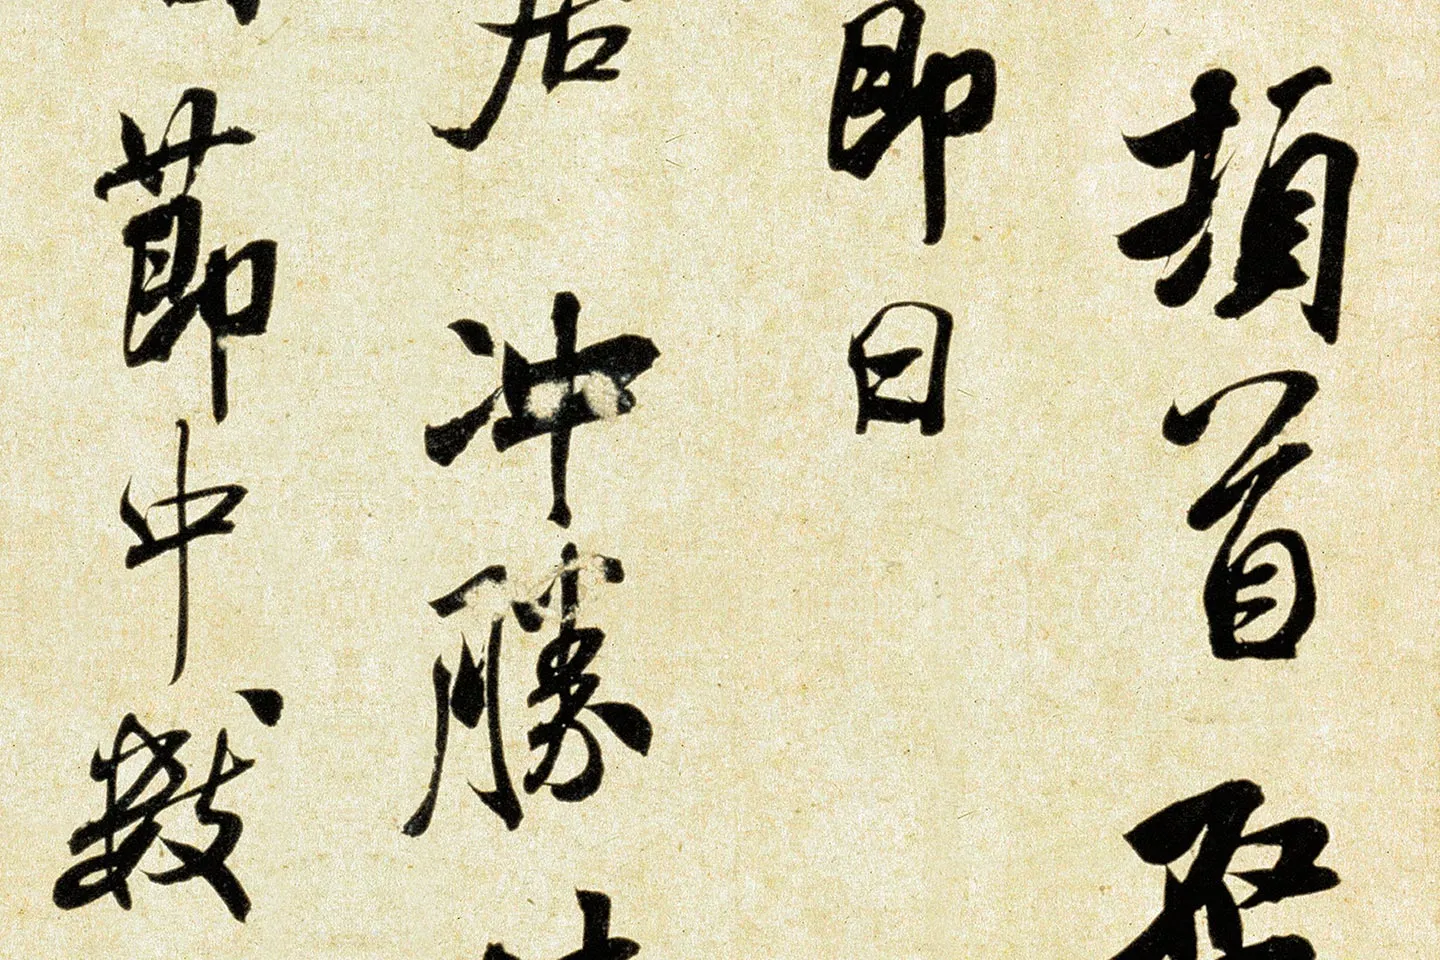 頓首
即日
居冲勝
節中数